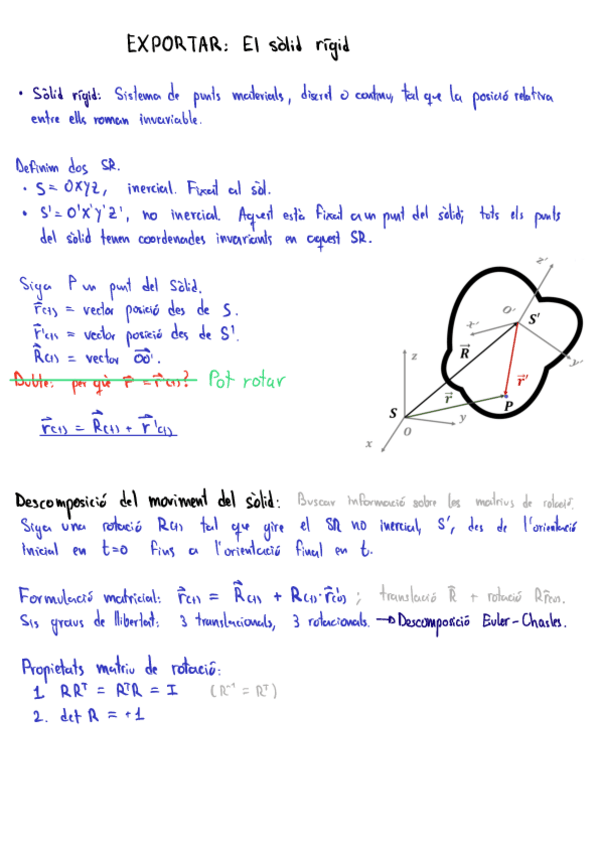 EXPORTAR: El sòlid rígid
• Sòlid rígid: Sistema de punts materials, discret o continu, tal que la posició relativa
entre ells roman invariable.
Definim dos SR.
• S = OXYZ, inercial. Fixat al sòl.
• S' = O'X'Y'Z', no inercial. Aquest està fixat a un punt del sòlid; tots els punts
del sòlid tenen coordenades invariants en aquest SR.
Siga P un punt del Sòlid.
r⃗(t) = vector posició des de S.
r⃗'(t) = vector posició des de S'.
R⃗(t) = vector OO'.
Dubte: per què r⃗' = r⃗'(t)? Pot rotar
r⃗(t) = R⃗(t) + r⃗'(t)
z'
O'
S'
x'
y'
R⃗
z
r⃗'
r⃗
P
S
O
y
x
Descomposició del moviment del sòlid: Buscar informació sobre les matrius de rotació.
Siga una rotació R(t) tal que gire el SR no inercial, S', des de l'orientació
inicial en t=0 fins a l'orientació final en t.
Formulació matricial: r⃗(t) = R⃗(t) + R(t)·r⃗'(0) ; translació R⃗ + rotació
Sis graus de llibertat: 3 translacionals, 3 rotacionals. → Descomposició Euler-Chasles.
Propietats matriu de rotació:
1. RRᵀ = RᵀR = I (R⁻¹ = Rᵀ)
2. det R = +1